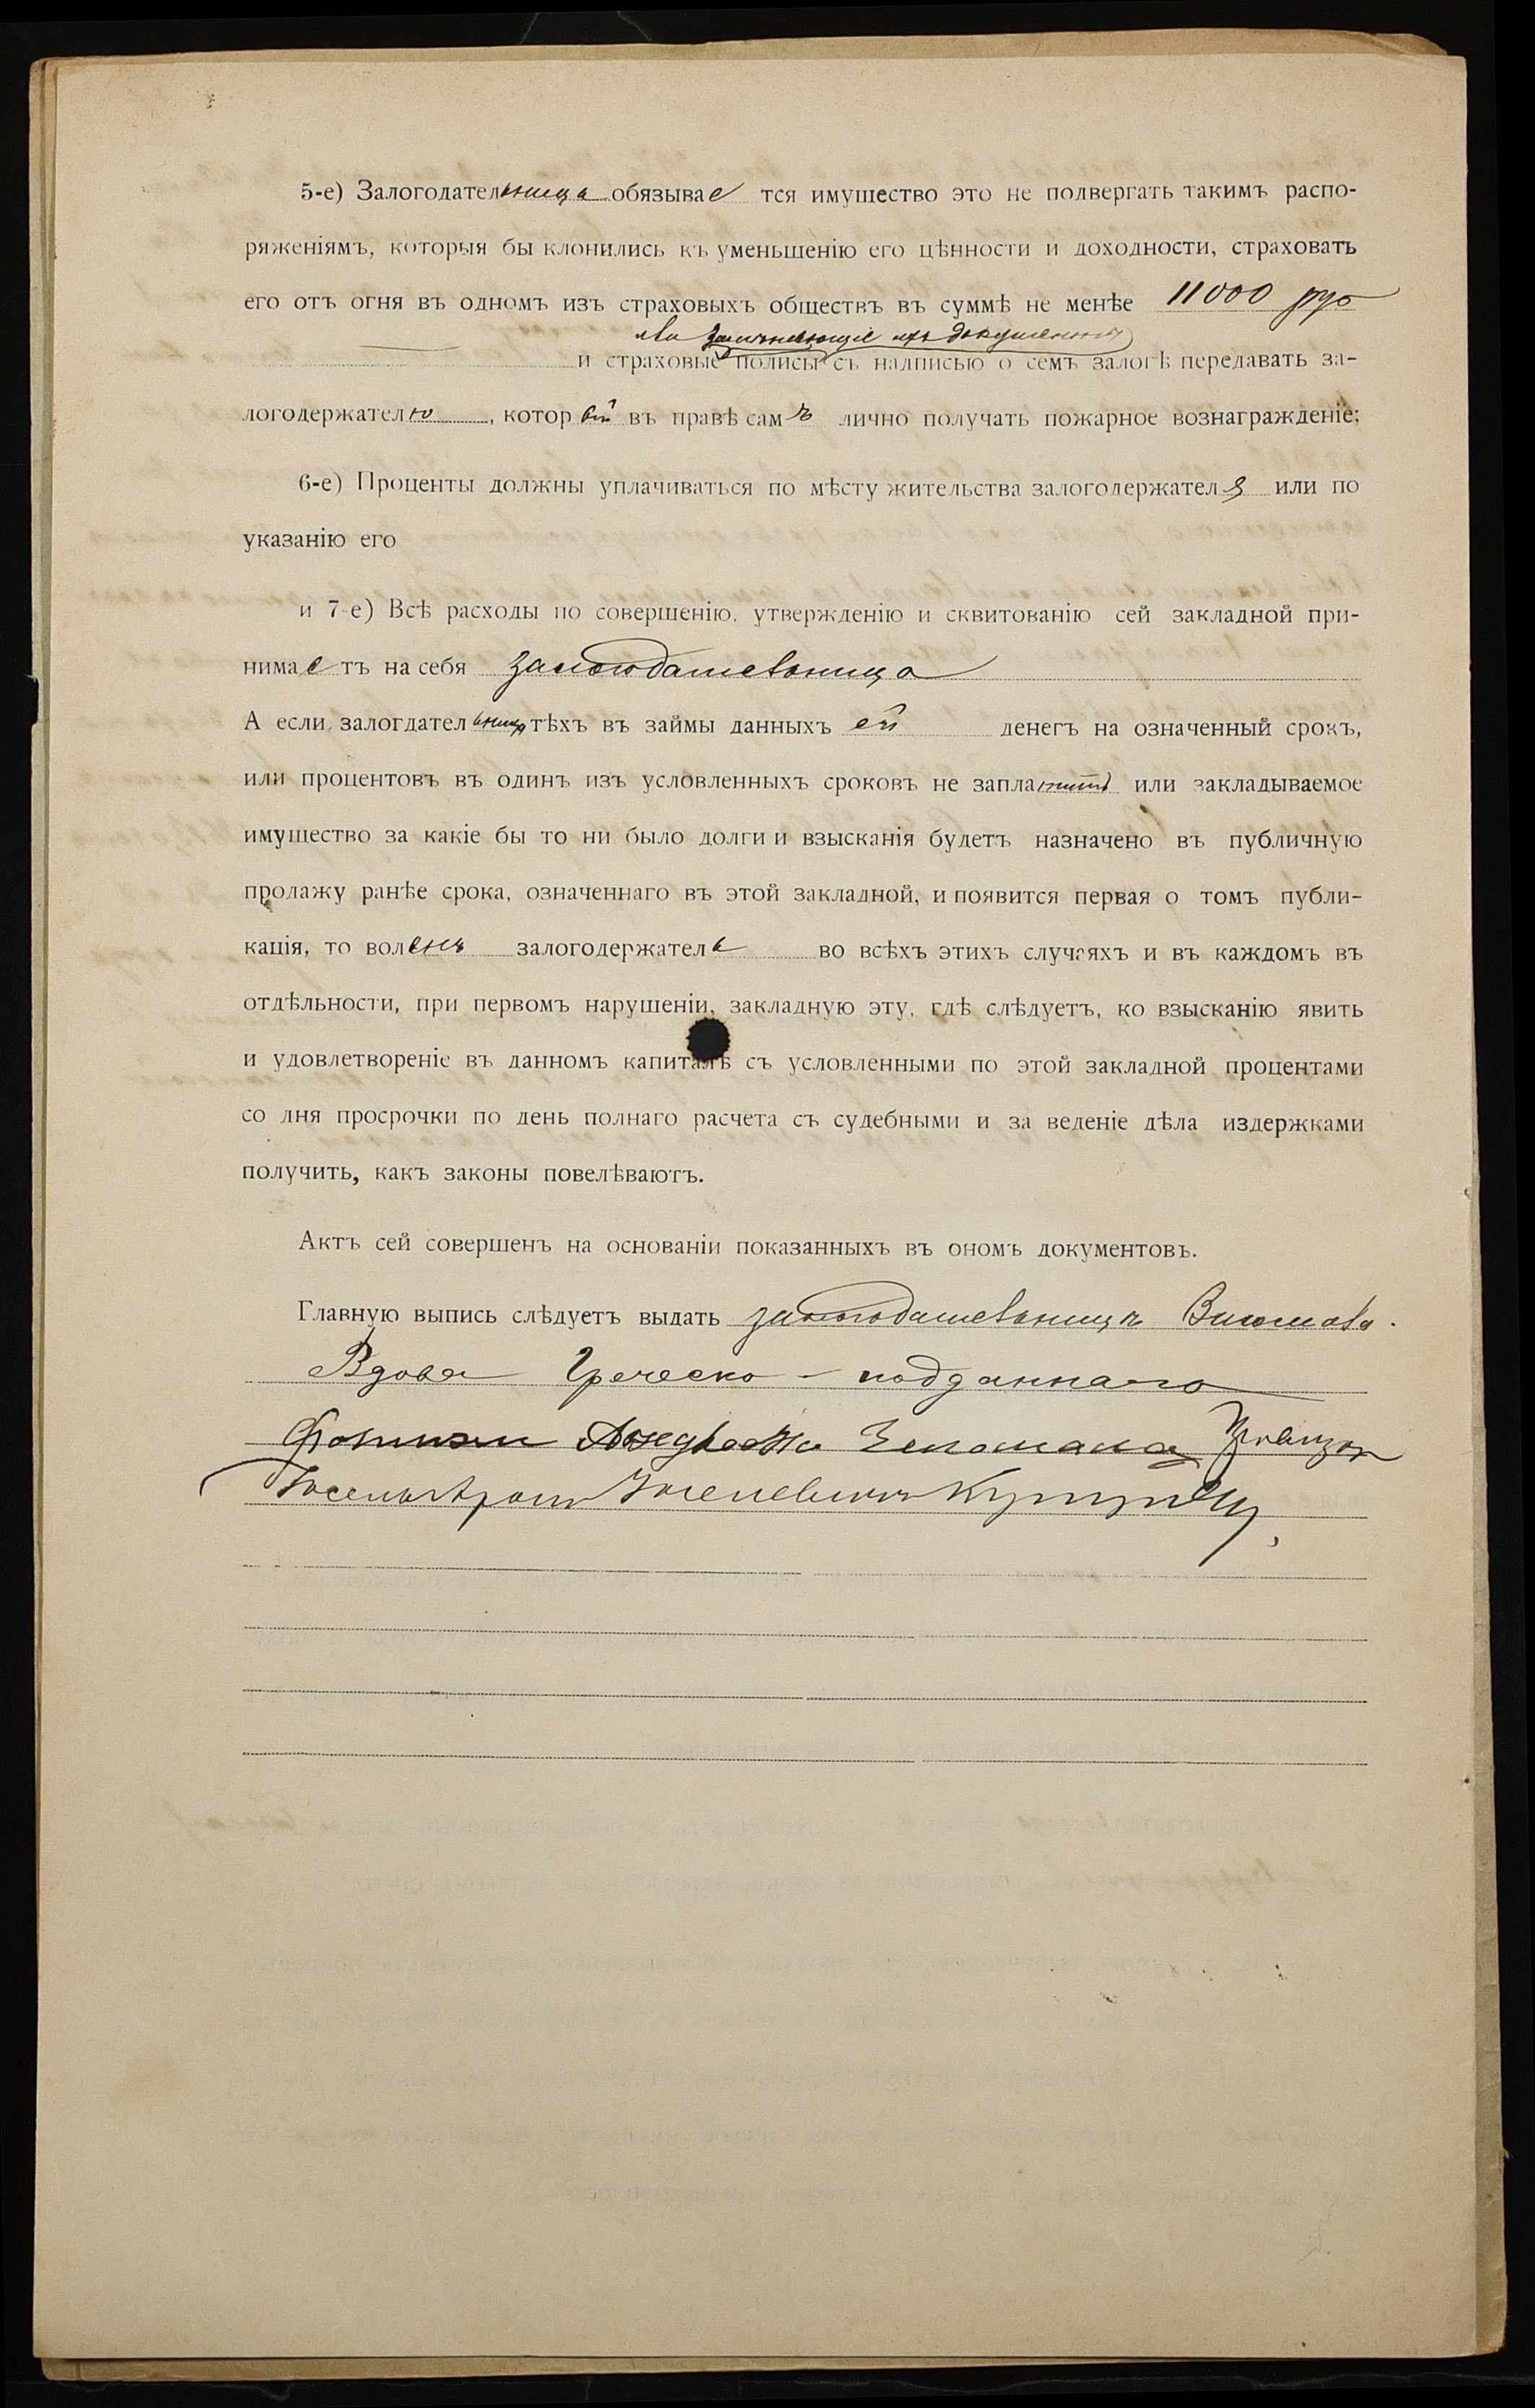 5-е) Залогодательница обязывае тся имущество это не подвергать такимъ распо-
ряженіямъ, которыя бы клонились къ уменьшенію его цѣнности и доходности, страховать
его отъ огня въ одномъ изъ страховыхъ обществъ въ суммѣ не менѣе 11000 руб
или замѣняющіе ихъ документы
и страховые полисы съ надписью о семъ залогѣ передавать за-
логодержателю, который въ правѣ самъ лично получать пожарное вознагражденіе;
6-е) Проценты должны уплачиваться по мѣсту жительства залогодержателя или по
указанію его
и 7-е) Всѣ расходы по совершенію, утвержденію и сквитованію сей закладной при-
нимаетъ на себя залогодательница
А если залогдательница тѣхъ въ займы данныхъ ей денегъ на означенный срокъ,
или процентовъ въ одинъ изъ условленныхъ сроковъ не заплатитъ или закладываемое
имущество за какіе бы то ни было долги и взысканія будетъ назначено въ публичную
продажу ранѣе срока, означеннаго въ этой закладной, и появится первая о томъ публи-
кація, то воленъ залогодержатель во всѣхъ этихъ случаяхъ и въ каждомъ въ
отдѣльности, при первомъ нарушеніи, закладную эту, гдѣ слѣдуетъ, ко взысканію явить
и удовлетвореніе въ данномъ капиталѣ съ условленными по этой закладной процентами
со дня просрочки по день полнаго расчета съ судебными и за веденіе дѣла издержками
получить, какъ законы повелѣваютъ.
Актъ сей совершенъ на основаніи показанныхъ въ ономъ документовъ.
Главную выпись слѣдуетъ выдать залогодательницѣ
Вдова Греческо-подданнаго